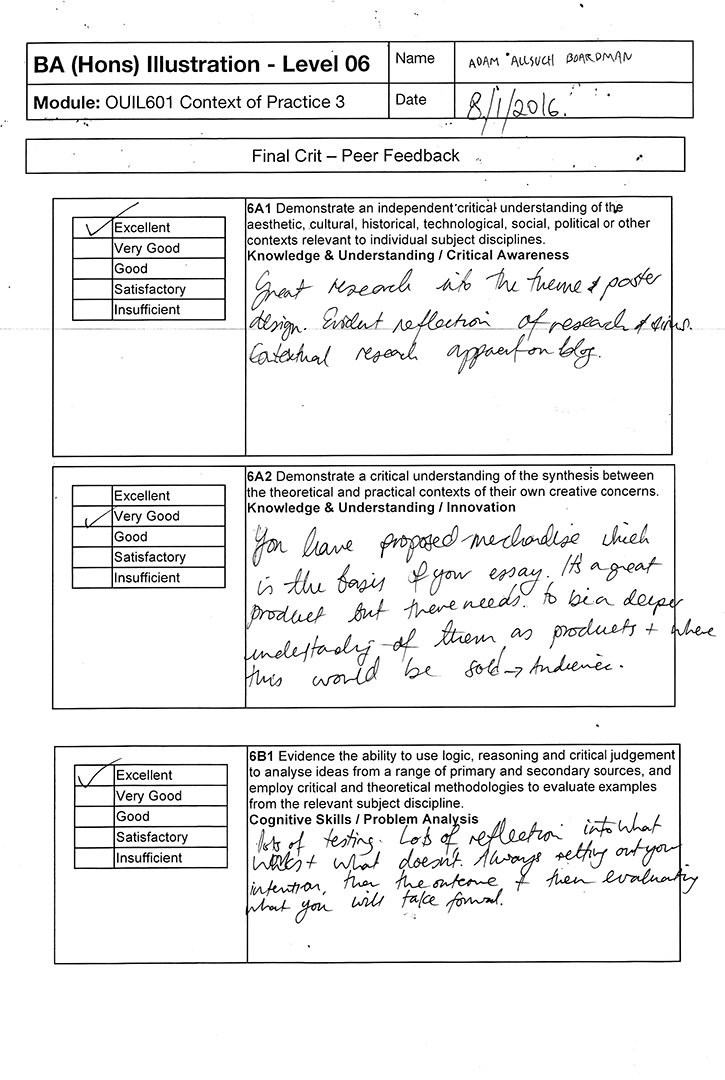 BA (Hons) Illustration - Level 06
Name
ADAM ALLSUCH BOARDMAN
Module: OUIL601 Context of Practice 3
Date
8/1/2016.
Final Crit – Peer Feedback
Excellent
Very Good
Good
Satisfactory
Insufficient
6A1 Demonstrate an independent critical understanding of the
aesthetic, cultural, historical, technological, social, political or other
contexts relevant to individual subject disciplines.
Knowledge & Understanding / Critical Awareness
Great research into the theme & poster
design. Evident reflection of research &
Contextual research apparent on blog.
Excellent
Very Good
Good
Satisfactory
Insufficient
6A2 Demonstrate a critical understanding of the synthesis between
the theoretical and practical contexts of their own creative concerns.
Knowledge & Understanding / Innovation
You have proposed merchandise which
is the basis of your essay. It's a great
product but there needs. to be a deeper
understanding of them as products + where
this would be sold → Audience.
Excellent
Very Good
Good
Satisfactory
Insufficient
6B1 Evidence the ability to use logic, reasoning and critical judgement
to analyse ideas from a range of primary and secondary sources, and
employ critical and theoretical methodologies to evaluate examples
from the relevant subject discipline.
Cognitive Skills / Problem Analysis
lots of testing. Lots of reflection into what
works + what doesn't. Always setting out your
intention, then the outcome + then evaluating
what you will take forward.